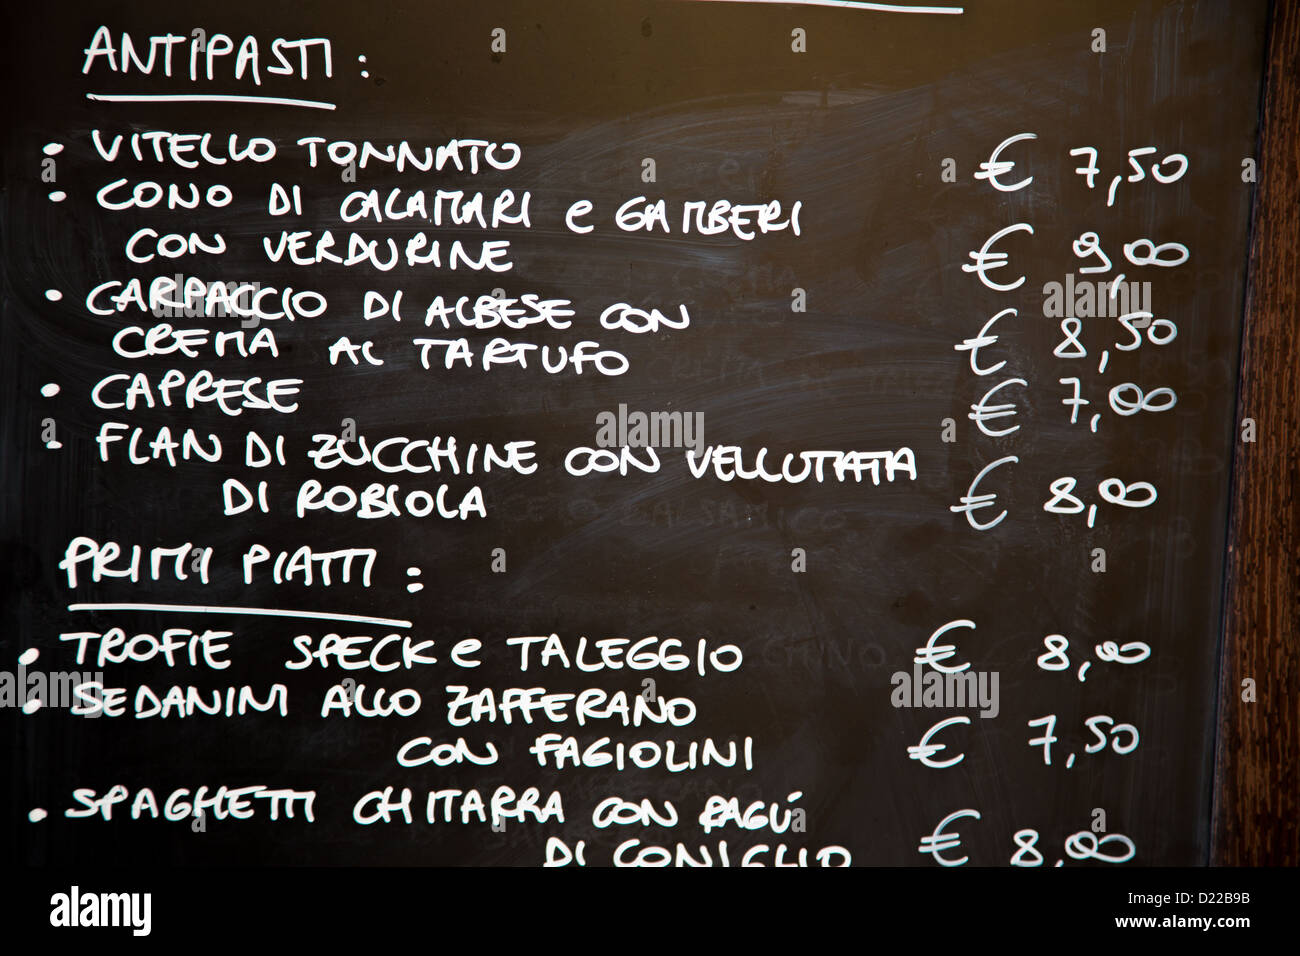 ANTIPASTI :
• VITELLO TONNATO € 7,50
• CONO DI CALAMARI e GAMBERI
CON VERDURINE € 9,00
• CARPACCIO DI ALBESE CON
CREMA AL TARTUFO € 8,50
• CAPRESE € 7,00
• FLAN DI ZUCCHINE CON VELLUTATA
DI ROBIOLA € 8,00
PRIMI PIATTI :
• TROFIE SPECK e TALEGGIO € 8,00
• SEDANINI ALLO ZAFFERANO
CON FAGIOLINI € 7,50
• SPAGHETTI CHITARRA CON RAGÚ
DI CONIGLIO € 8,00
alamy
Image ID: D22B9B
www.alamy.com